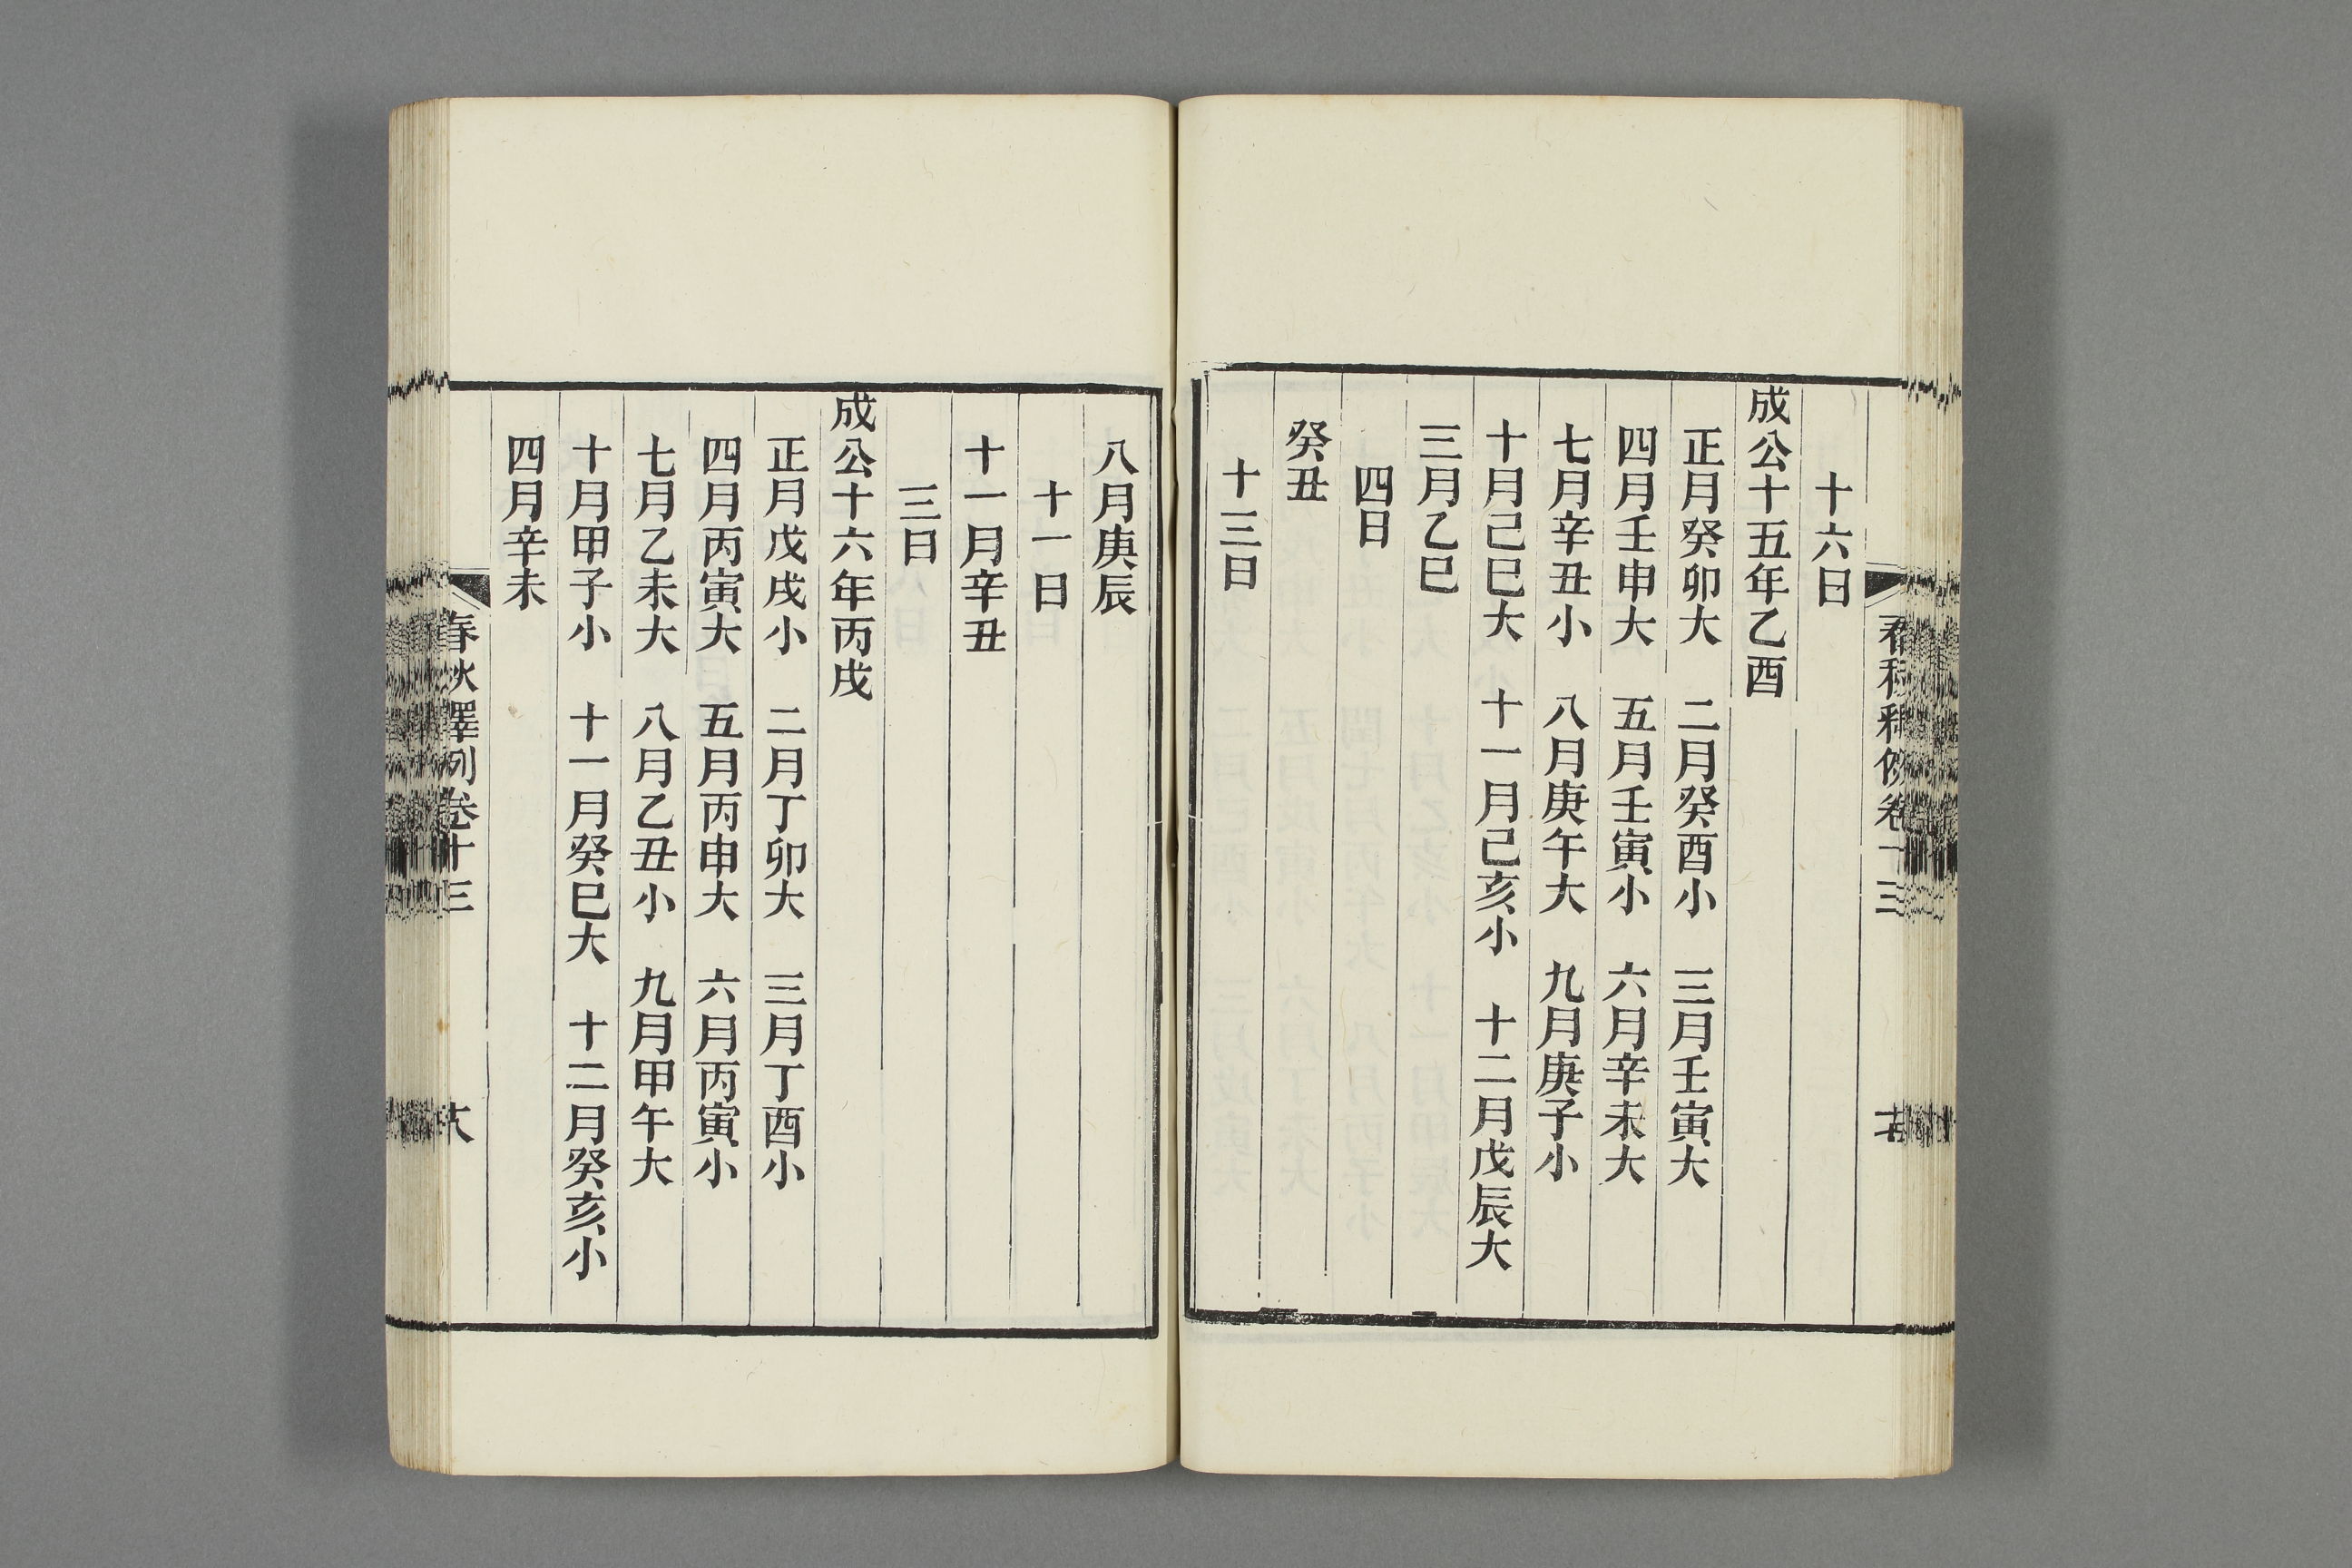 十六日
成公十五年乙酉
正月癸卯大　二月癸酉小　三月壬寅大
四月壬申大　五月壬寅小　六月辛未大
七月辛丑小　八月庚午大　九月庚子小
十月己巳大　十一月己亥小　十二月戊辰大
三月乙巳
四日
癸丑
十三日
八月庚辰
十一日
十一月辛丑
三日
成公十六年丙戌
正月戊戌小　二月丁卯大　三月丁酉小
四月丙寅大　五月丙申大　六月丙寅小
七月乙未大　八月乙丑小　九月甲午大
十月甲子小　十一月癸巳大　十二月癸亥小
四月辛未
春秋釋例卷十三